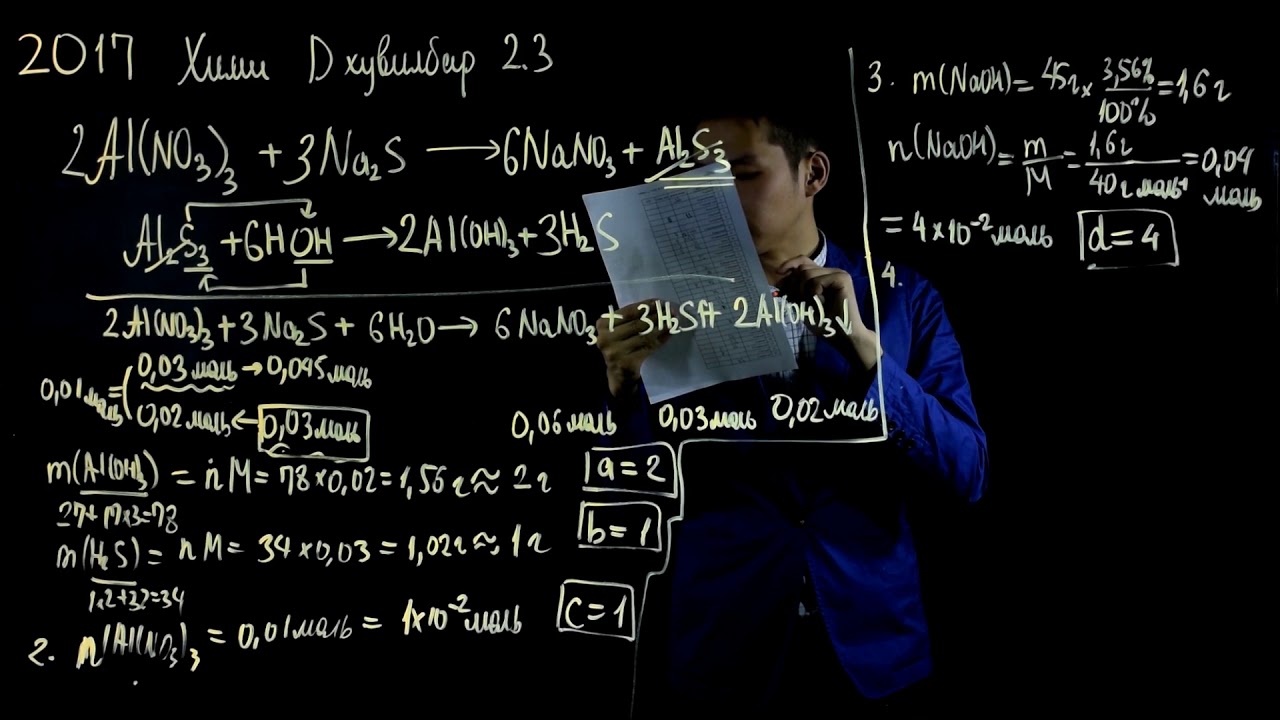 2017 Хими D хувилбар 2.3
2Al(NO₃)₃ + 3Na₂S → 6NaNO₃ + Al₂S₃
Al₂S₃ + 6HOH → 2Al(OH)₃ + 3H₂S
2Al(NO₃)₃ + 3Na₂S + 6H₂O → 6NaNO₃ + 3H₂S↑ + 2Al(OH)₃↓
0,03 моль → 0,045 моль
0,01 моль =
0,02 моль ← 0,03 моль 0,06 моль 0,03 моль 0,02 моль
m(Al(OH)₃) = nM = 78×0,02 = 1,56г ≈ 2г a=2
27+17×3=78
m(H₂S) = nM = 34×0,03 = 1,02г ≈ 1г b=1
1·2+32=34
2. n(Al(NO₃)₃ = 0,01 моль = 1×10⁻² моль c=1
3. m(NaOH) = 45г × 3,56%/100% = 1,6г
n(NaOH) = m/M = 1,6г/40г моль⁻¹ = 0,04 моль
= 4×10⁻² моль d=4
4.